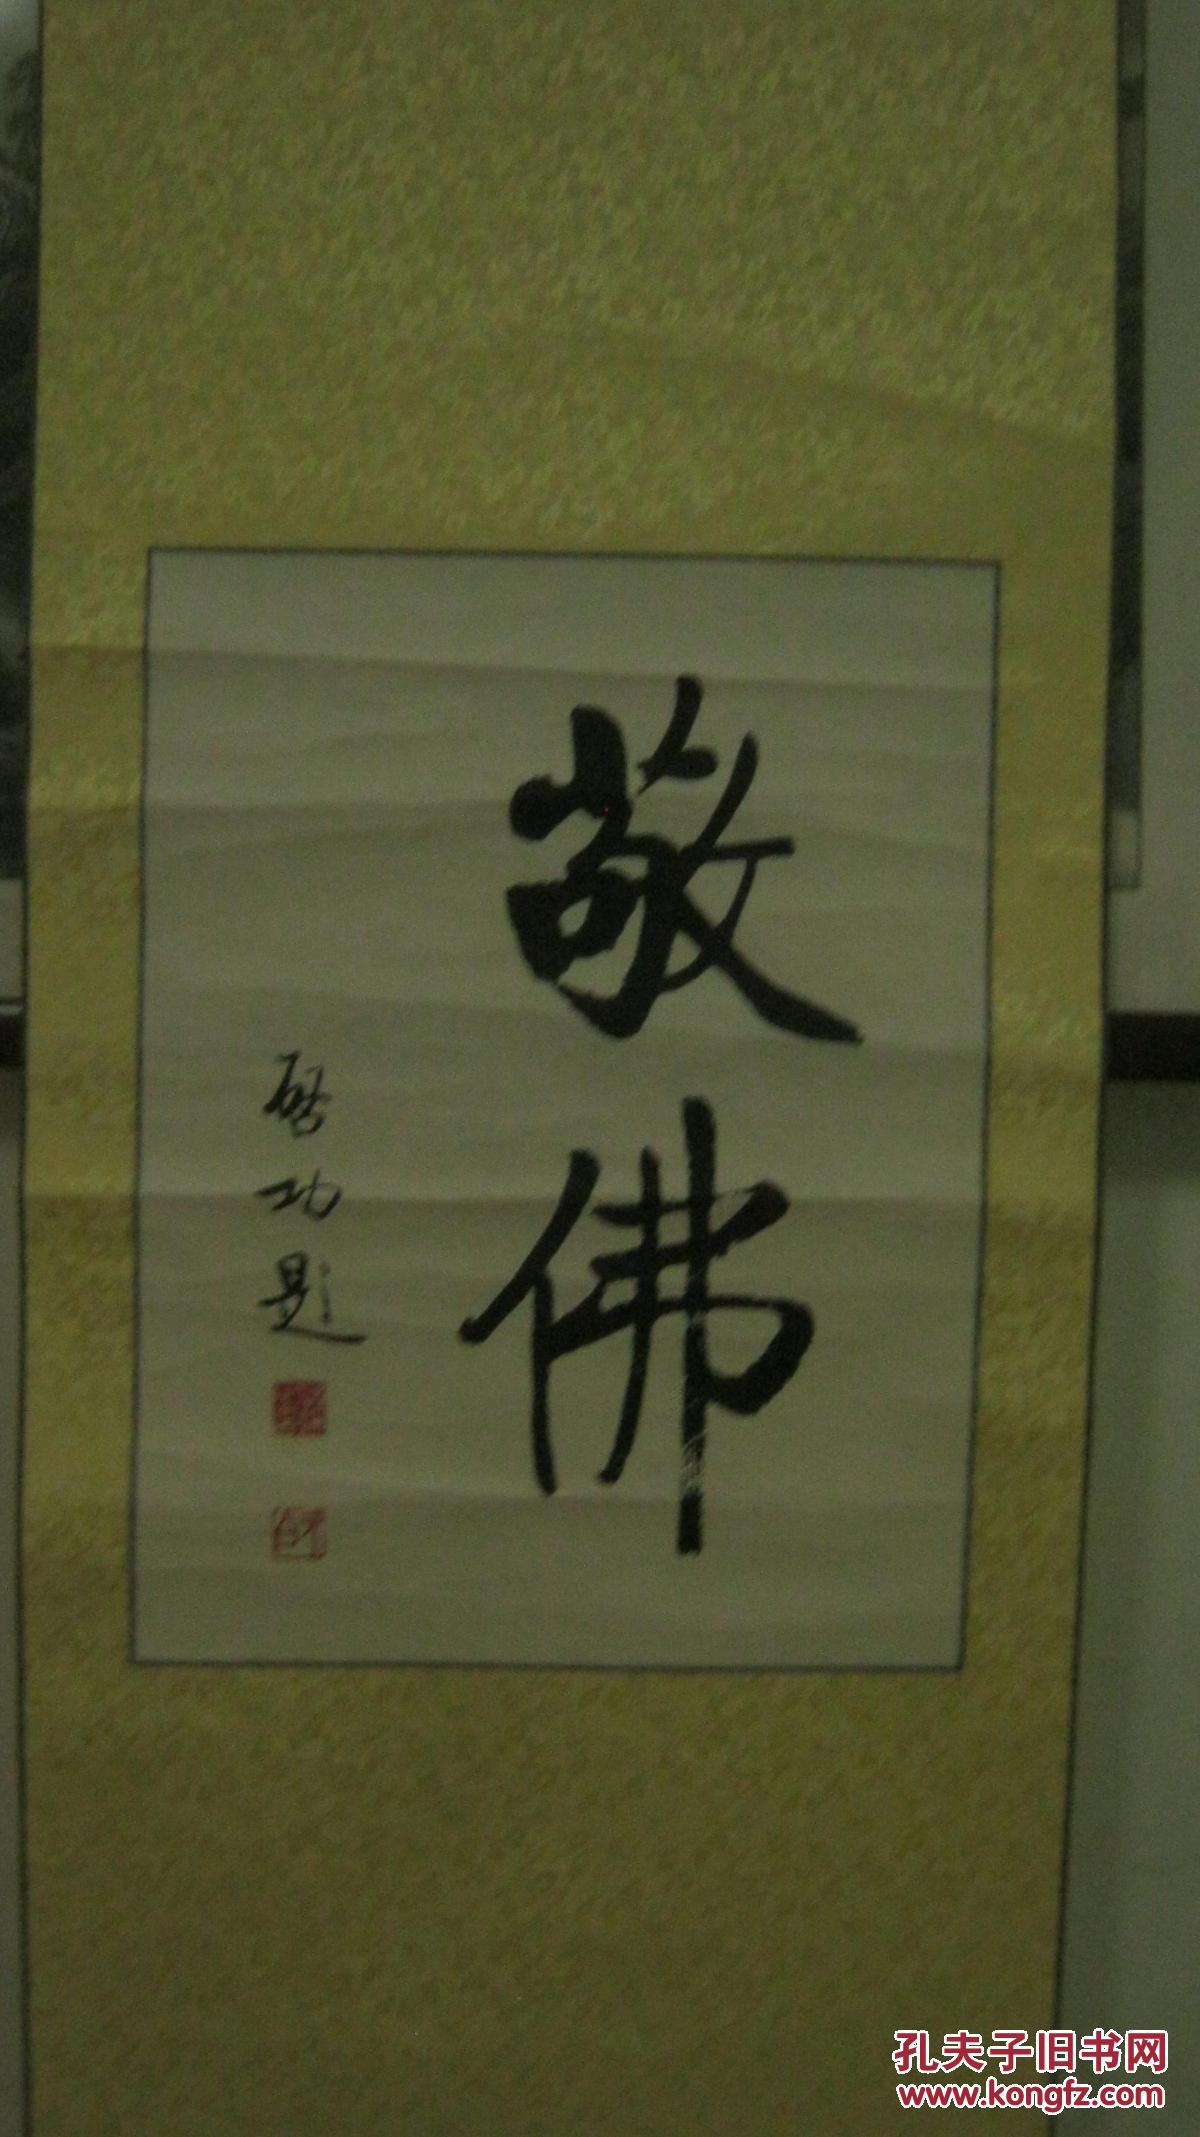 敬佛
启功题
孔夫子旧书网
www.kongfz.com